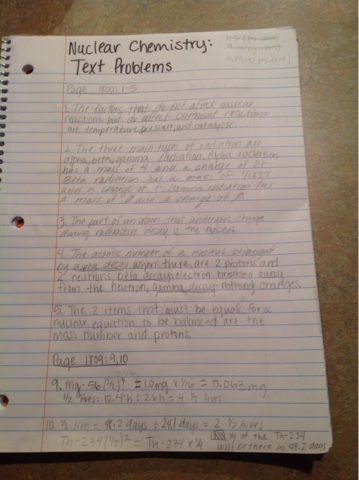 Nuclear Chemistry:
Text Problems
Page 1800: 1-5
1. The factors that do not affect nuclear
reactions but do affect chemical reactions
are temperature, pressure, and catalysts.
2. The three main types of radiation are
alpha, beta, gamma radiation. Alpha radiation
has a mass of 4 and a charge of 2+.
Beta radiation has a mass of 1/1837
and a charge of 1-. Gamma radiation has
a mass of 0 and a charge of 0.
3. The part of an atom that undergoes change
during radioactive decay is the nucleus.
4. The atomic number of a nucleus changed
by alpha decay when there are 2 protons and
2 neutrons, beta decay: electron breaking away
from the neutron, gamma decay: nothing changes
5. The 2 items that must be equal for a
nuclear equation to be balanced are the
mass number and protons.
Page 1809: 9,10
9. mg-56(1/2)4 = 1.0mg x 1/16 = 0.063mg
1/2 lives = 10.4 h ÷ 2.6h = 4 1/2 lives
10. 1/2 lives = 48.2 days ÷ 24.1 days = 2 1/2 lives
Th-234(1/2)2 = Th-234 x 1/4
No, 1/4 of the Th-234
will be there in 48.2 days